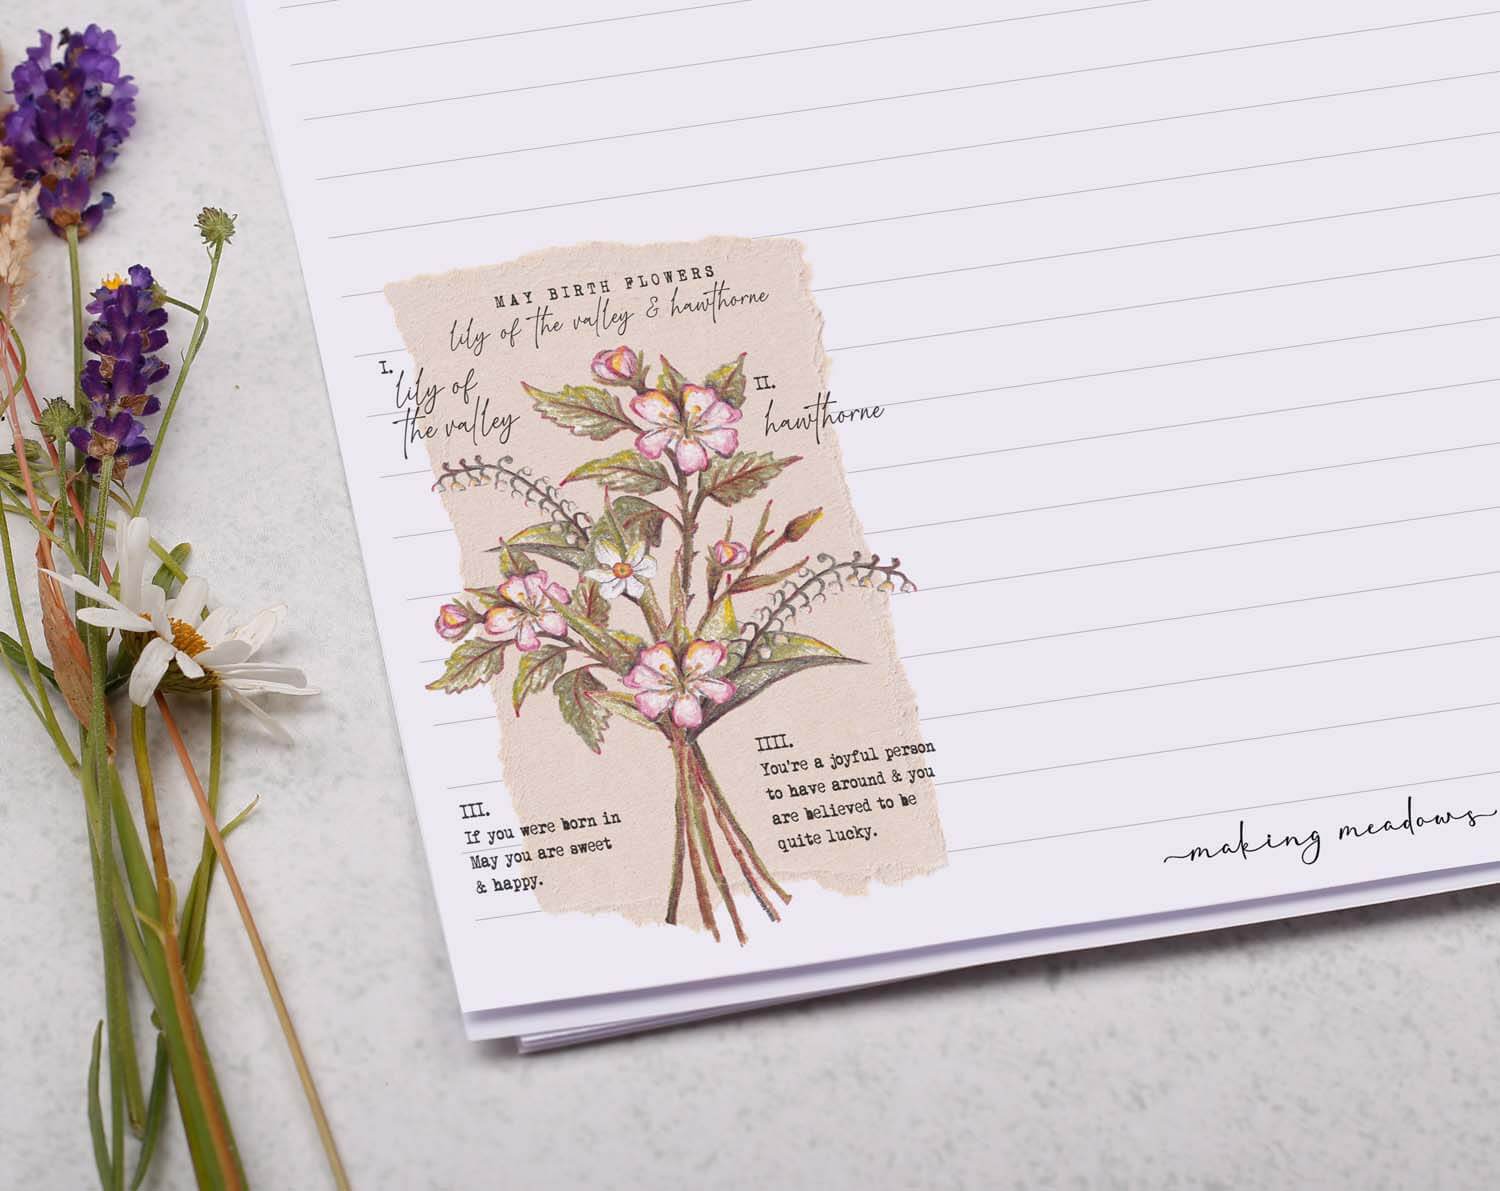 MAY BIRTH FLOWERS
lily of the valley & hawthorne
I.
lily of
the valley
II.
hawthorne
III.
If you were born in
May you are sweet
& happy.
IIII.
You're a joyful person
to have around & you
are believed to be
quite lucky.
making meadows